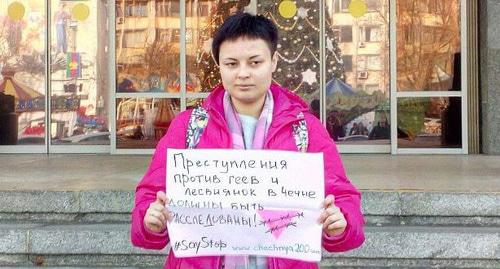 Преступления
против геев и
лесбиянок в Чечне
должны быть
расследованы!
#SayStop www.chechnya200